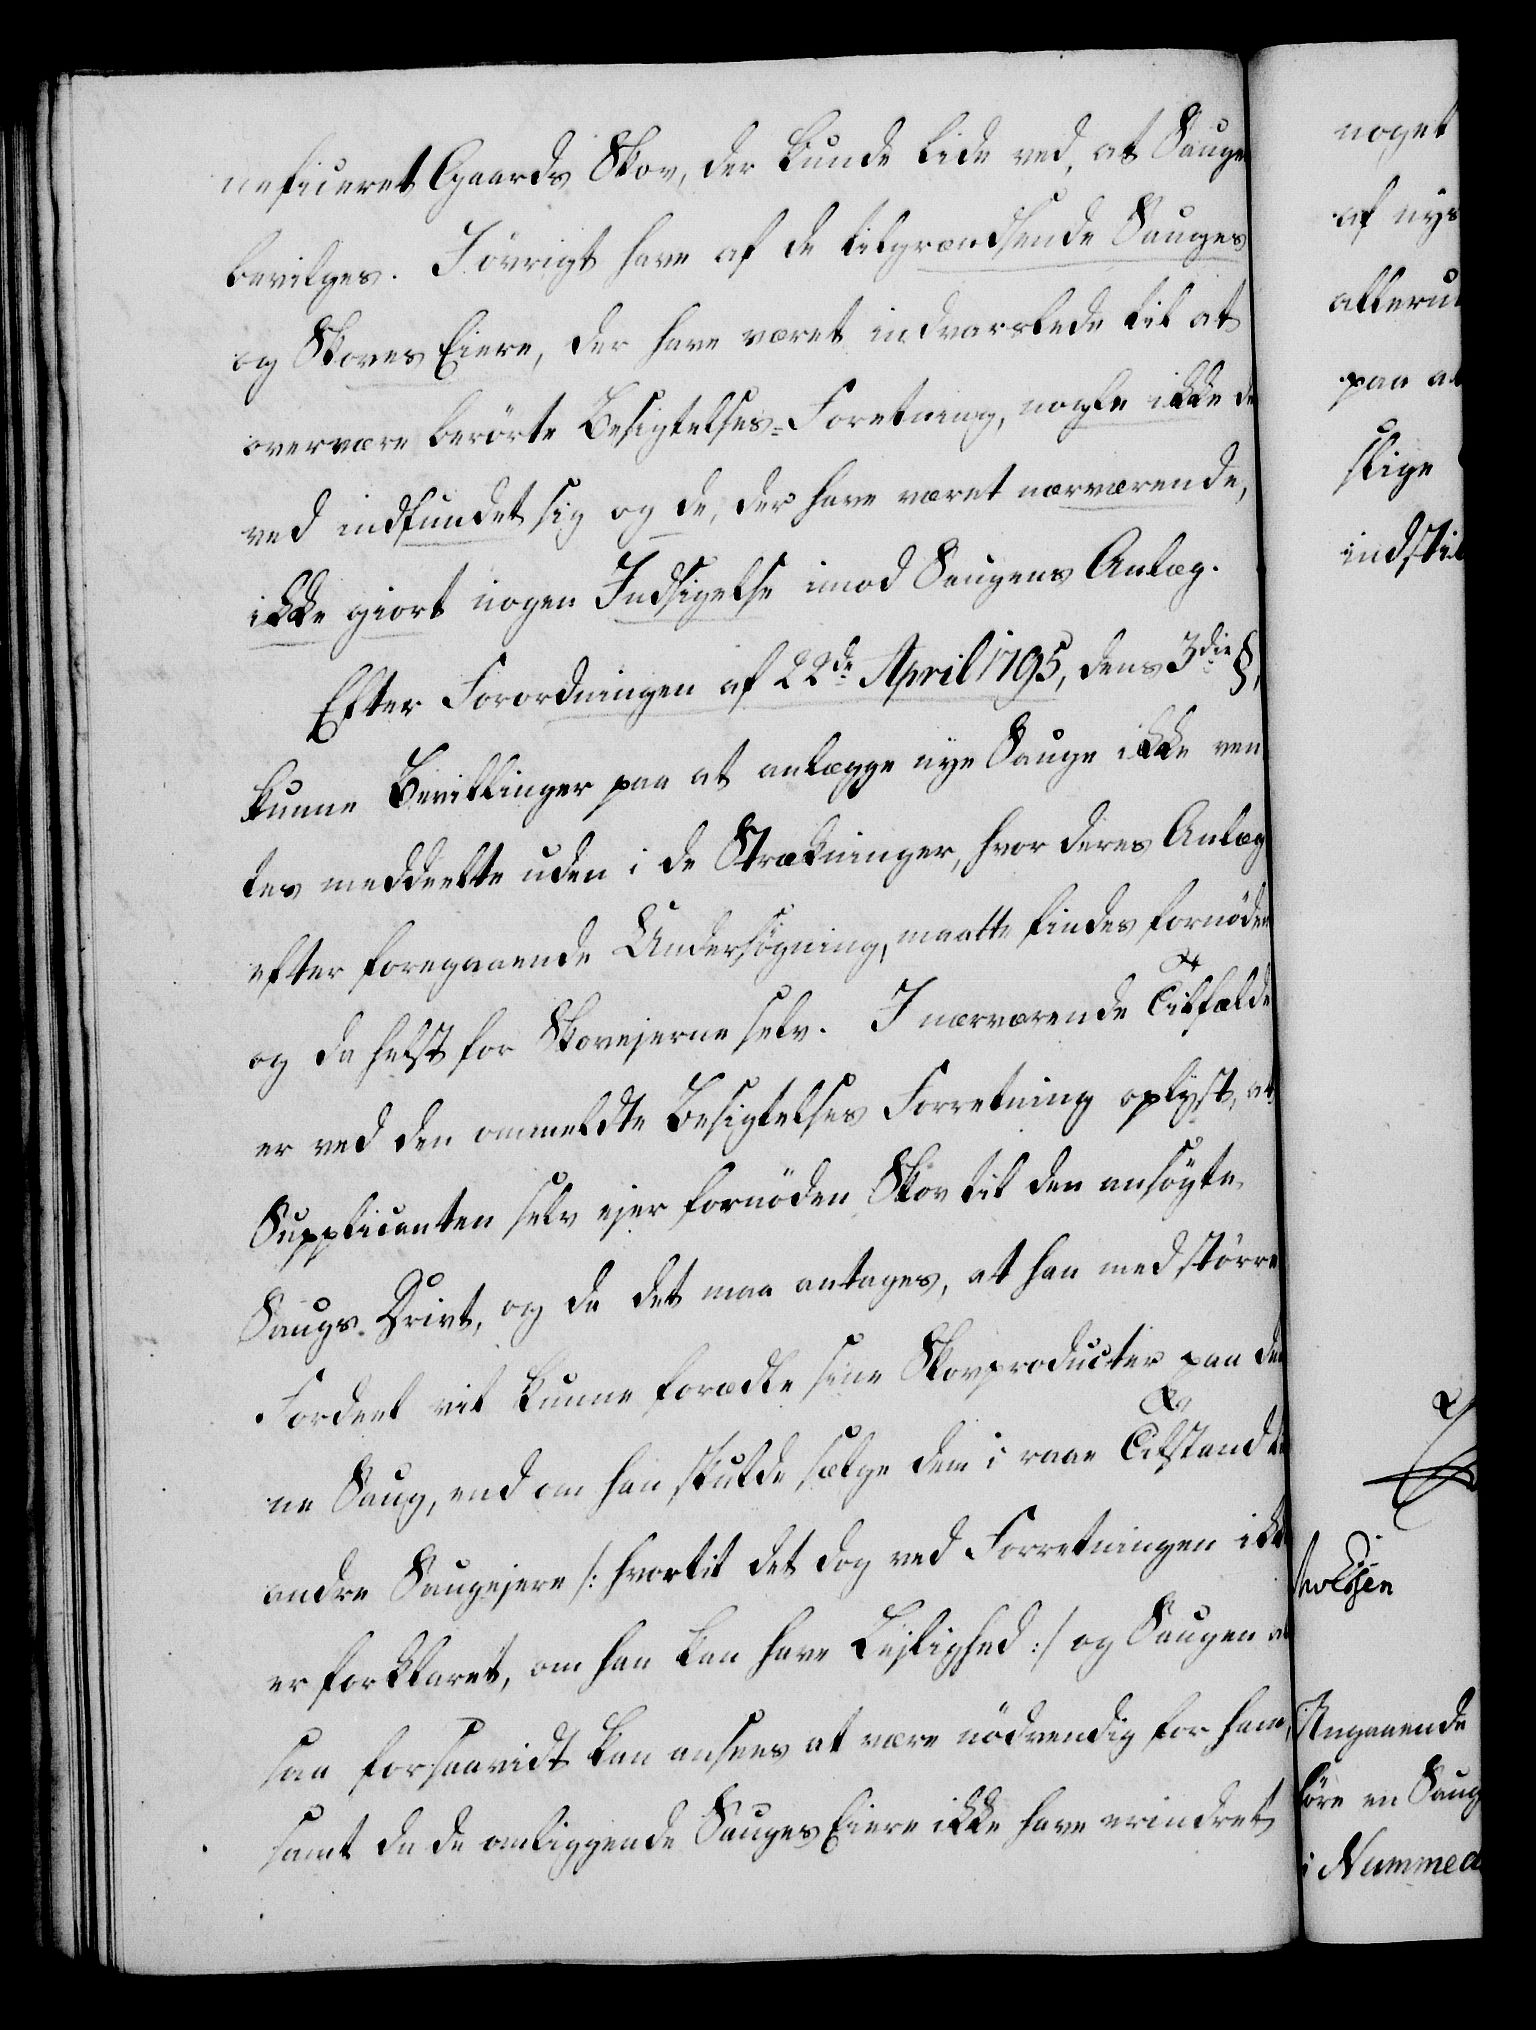 neficeret Gaards Skov, der kunde lide ved, at Sauge
bevilges. Iövrigt have af de tilgrændsende Sauges
og Skoves Eiere, der have været indvarslede til at
overvære berörte Besigtelses-Foretning, nogle ikke der
ved indfundet sig og de, der have været nærværende,
ikke giort nogen Indsigelse imod Saugens Anlæg.
Efter Forordningen af 22de April 1795, dens 3die §,
kunne Bevillinger paa at anlægge nye Sauge ikke ven
tes meddeelte uden i de Strækninger, hvor deres Anlæg
efter foregaaende Undersögning, maatte findes fornöden
og da helst for Skovejerne selv. I nærværende Tilfælde
er ved den ommeldte Besigtelses Forretning oplyst, at
Supplicanten selv ejer fornöden Skov til den ansögte
Saugs Drivt, og da det maa antages, at han med större
Fordeel vil kunne forædle sine Skovproducter paa den
ne Saug, end om han skulde sælge dem i raae Tilstand til
andre Saugejere /: hvortil det dog ved Forretningen ikke
er forklaret, om han kan have Lejlighed :/ og Saugen alt
saa forsaavidt kan ansees at være nödvendig for ham,
samt da de omliggende Sauges Eiere ikke have erindret
noget
af nys
allerun
paa at
slige
indstil
Angaaende
före en Saug
i Nummed